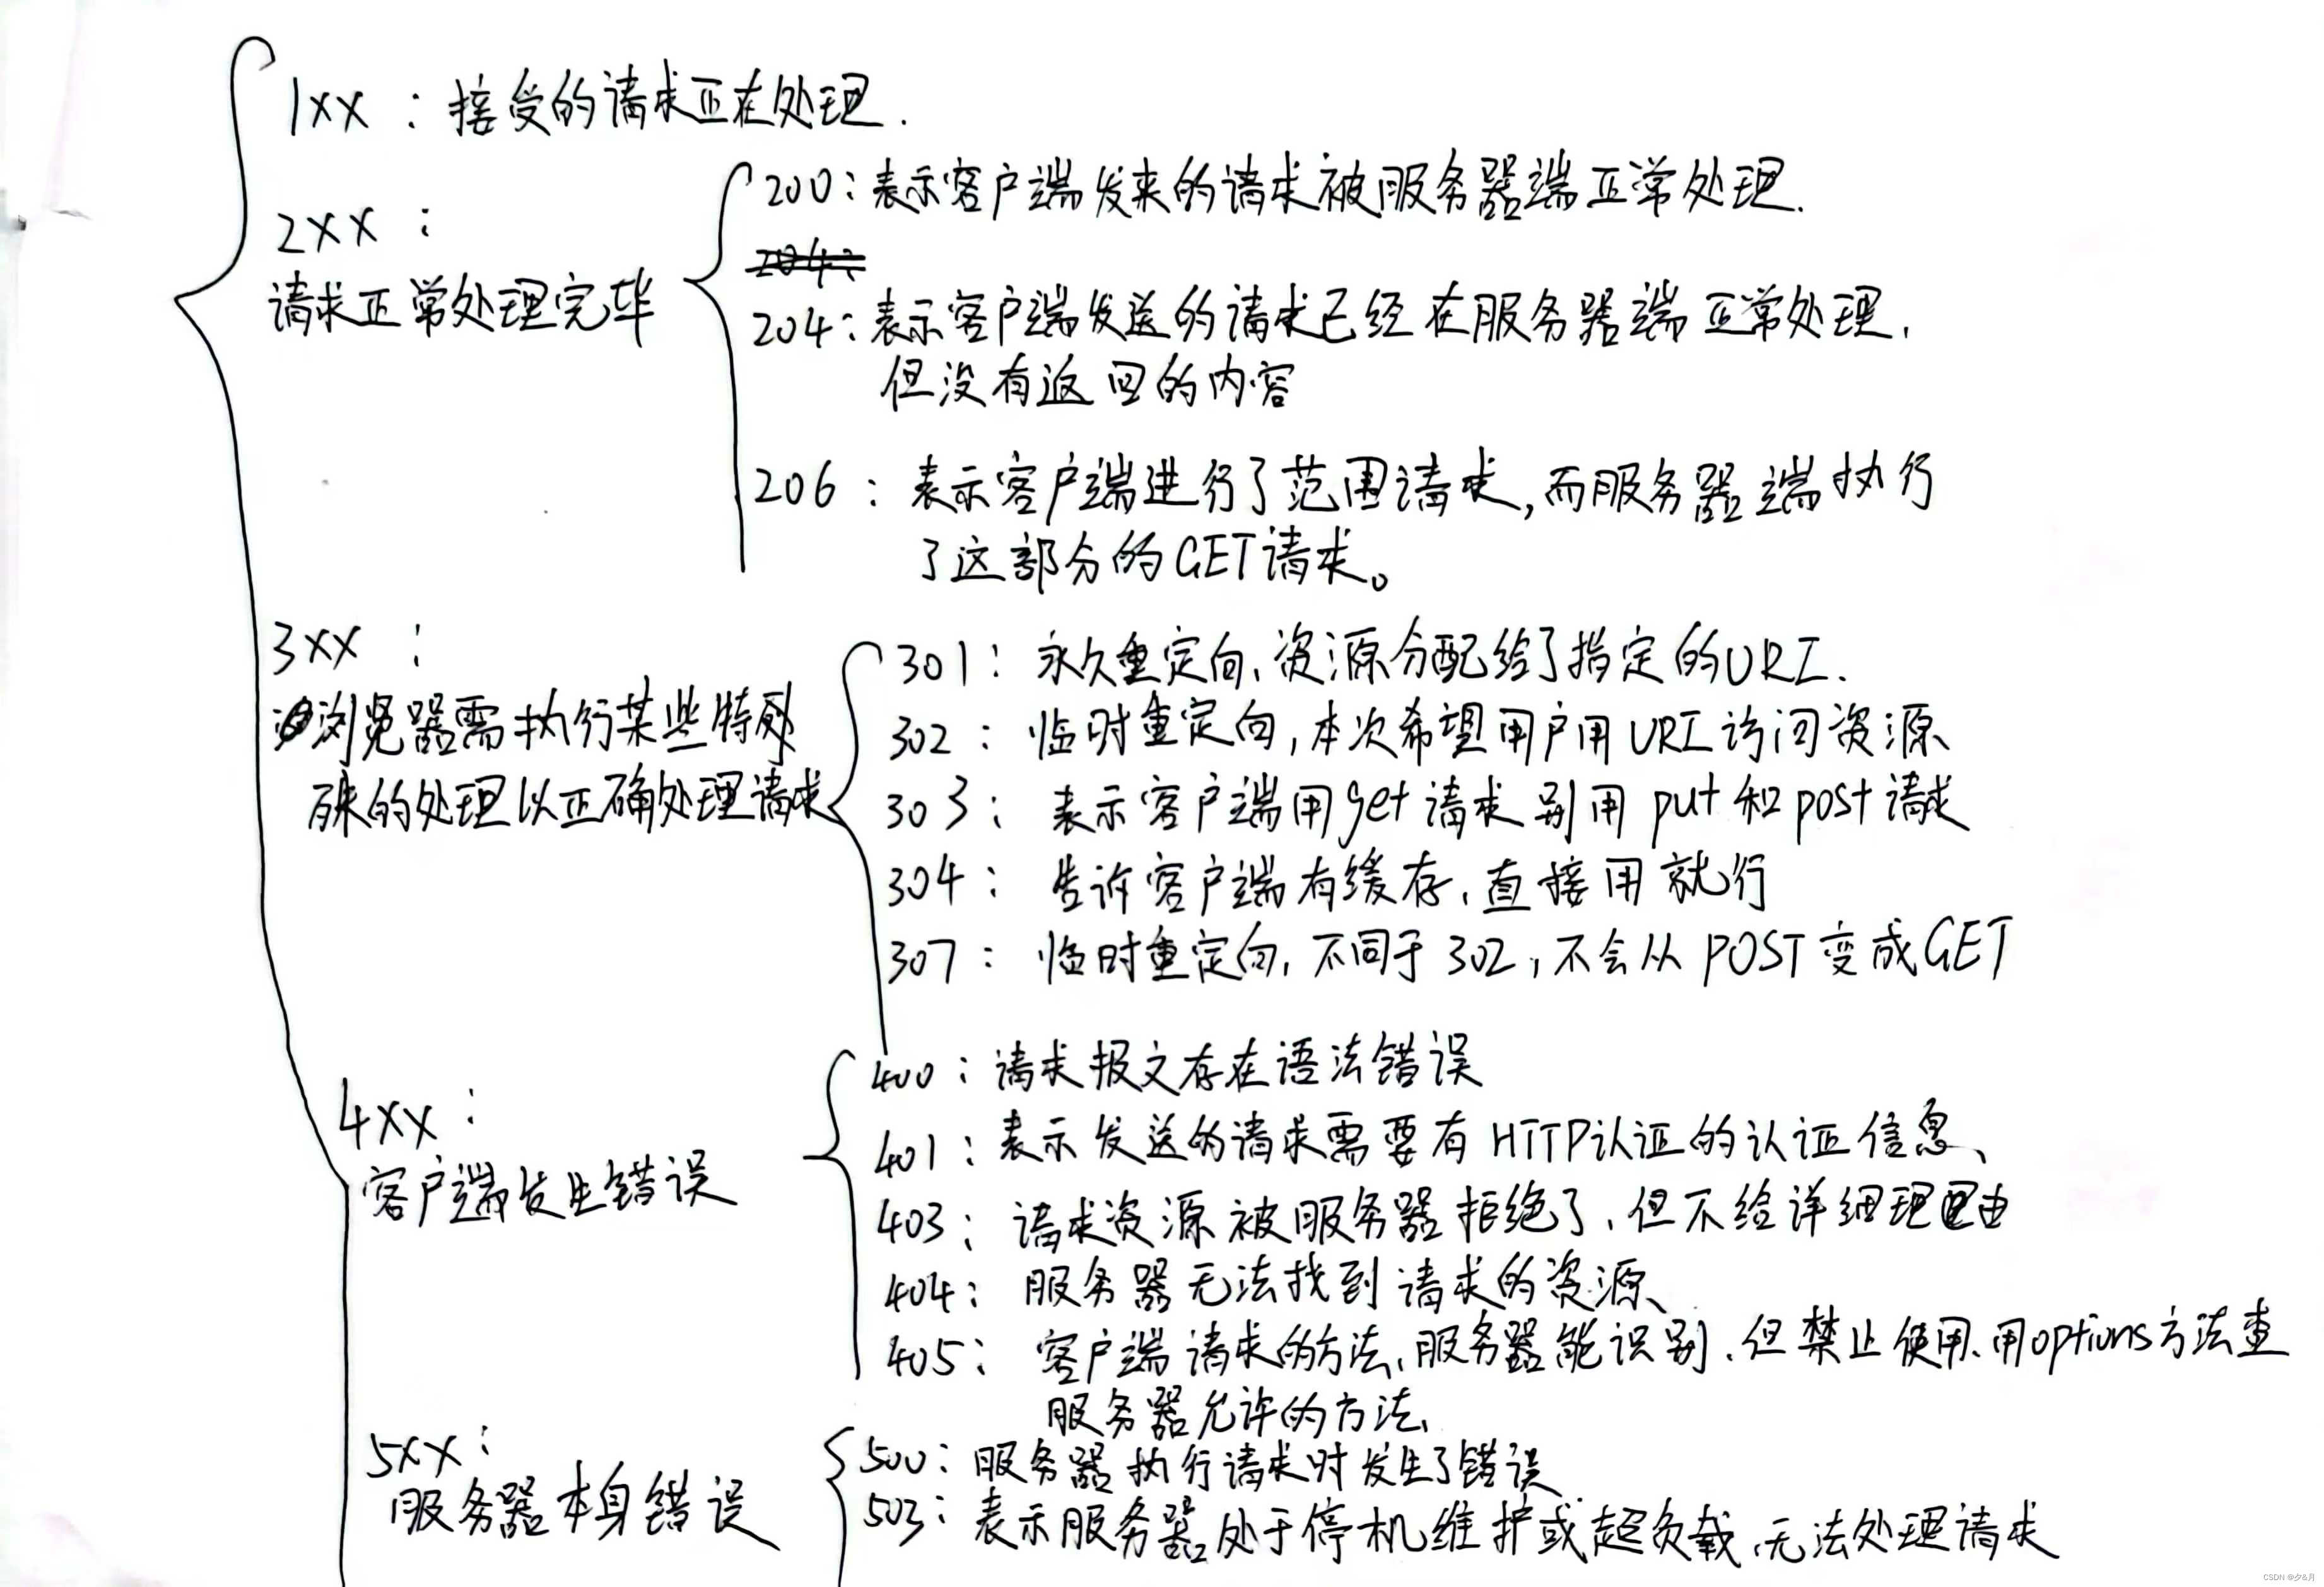 1xx：接受的请求正在处理.
2xx：
请求正常处理完毕
200：表示客户端发来的请求被服务器端正常处理.
204：表示客户端发送的请求已经在服务器端正常处理,
但没有返回的内容
206：表示客户端进行了范围请求,而服务器端执行
了这部分的GET请求。
3xx：
浏览器需执行某些特
殊的处理以正确处理请求
301：永久重定向,资源分配给了指定的URI.
302：临时重定向,本次希望用户用URI访问资源
303：表示客户端用get请求别用put和post请求
304：告诉客户端有缓存,直接用就行
307：临时重定向,不同于302,不会从POST变成GET
4xx：
客户端发生错误
400：请求报文存在语法错误
401：表示发送的请求需要有HTTP认证的认证信息、
403：请求资源被服务器拒绝了,但不给详细理由
404：服务器无法找到请求的资源、
405：客户端请求的方法,服务器能识别,但禁止使用、用options方法查
服务器允许的方法、
5xx：
服务器本身错误
500：服务器执行请求时发生了错误
503：表示服务器处于停机维护或超负载,无法处理请求
CSDN @夕&月